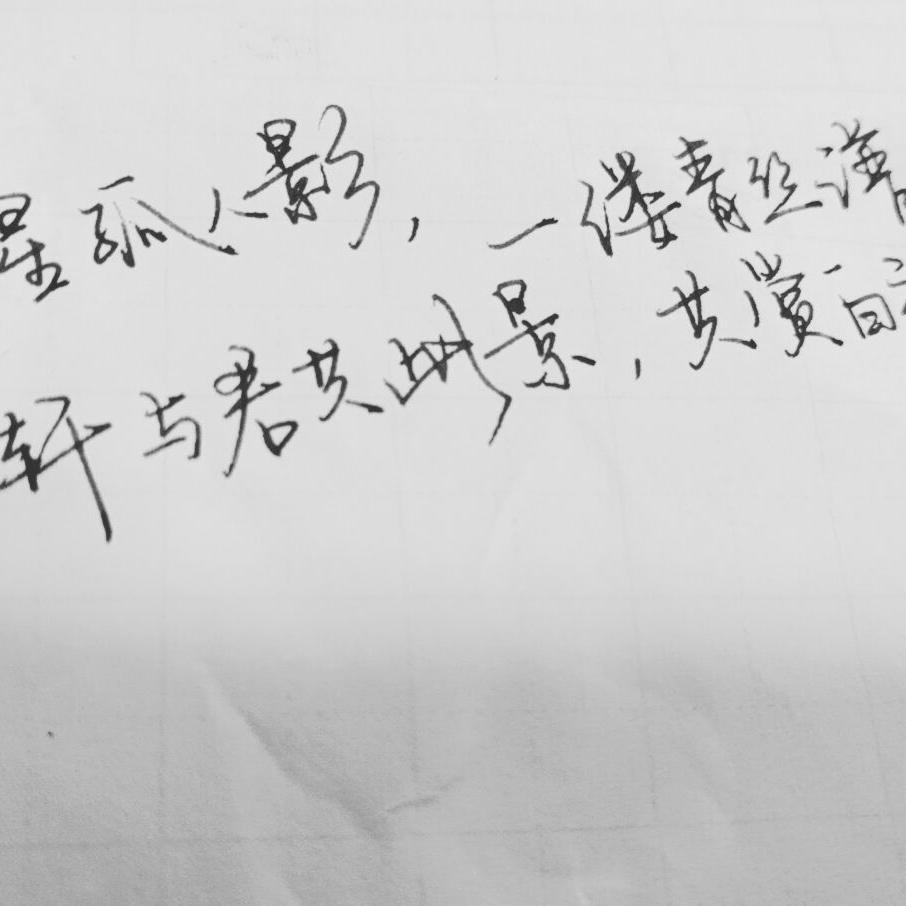 星孤人影，一缕青丝
轩与君共此景，共赏百